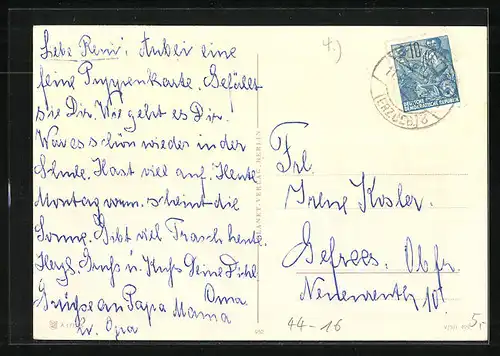 Liebe Reni! Anbei eine
feine Puppenkarte. Gefällt
sie Dir. Wie geht es Dir.
War es schön wieder in der
Schule. Hast viel auf. Heute
Montag vorm. scheint die
Sonne. Gibt viel Trasch heute.
Herzl. Gruß u. Kuß Deine Dichl.
Oma
Grüße an Papa Mama
u. Opa
4.)
DEUTSCHE
DEMOKRATISCHE REPUBLIK
(ERZGEB)
PLANET-VERLAG, BERLIN
Frl.
Irene Kosler.
Gefrees. Obfr.
Neuenreuth 101
44-16
5,-